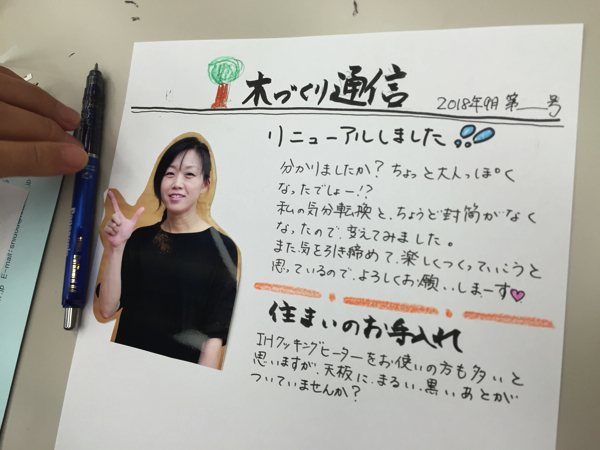 木づくり通信
2018年9月 第__号
リニューアルしました
分かりましたか？ちょっと大人っぽく
なったでしょー!?
私の気分転換と、ちょうど封筒がなく
なったので、変えてみました。
また気を引き締めて、楽しくつくっていこうと
思っているので、よろしくお願いしまーす
住まいのお手入れ
IHクッキングヒーターをお使いの方も多いと
思いますが、天板に、まるい、黒いあとが
ついていませんか？
E-mail: